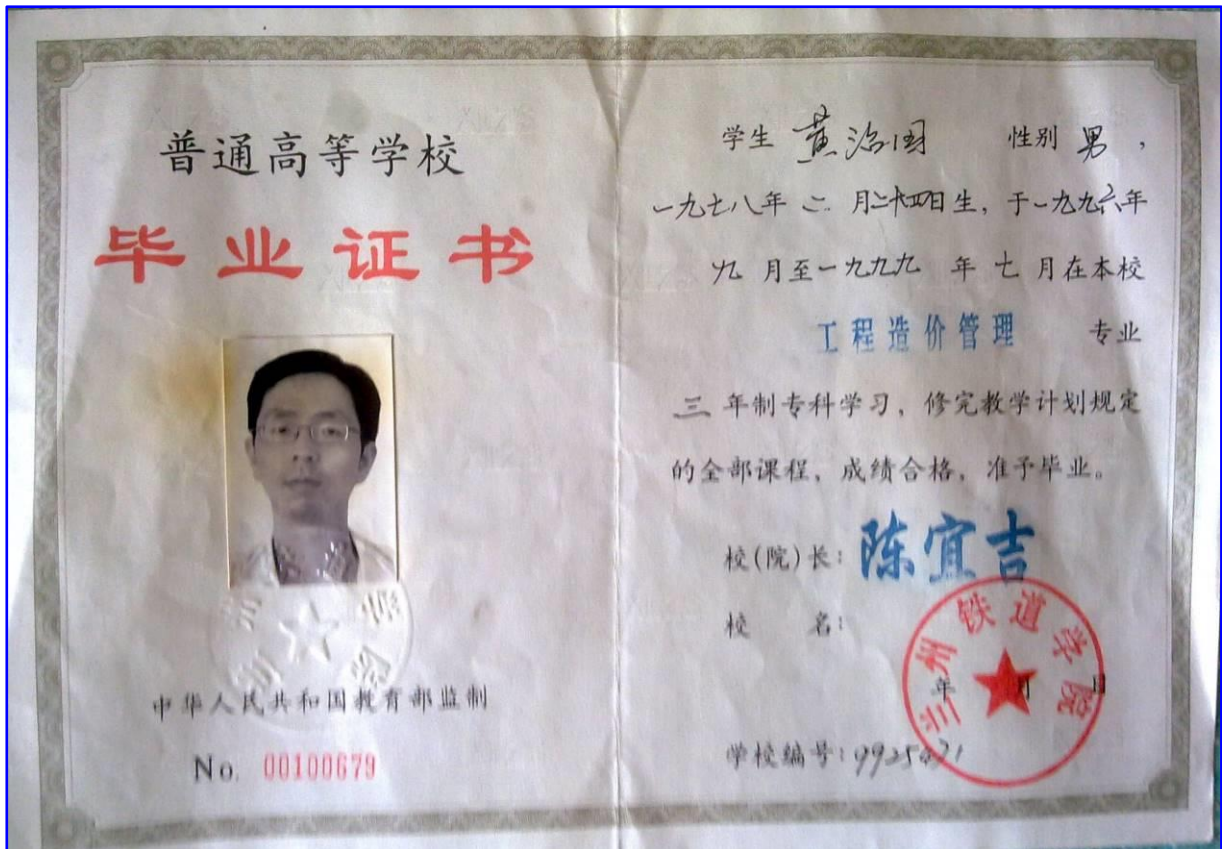 普通高等学校
毕业证书
中华人民共和国教育部监制
No. 00100679
学生 黄治国 性别 男,
一九七八年 二 月二十四日生, 于一九九六年
九 月至一九九九 年 七 月在本校
工程造价管理 专业
三 年制专科学习, 修完教学计划规定
的全部课程, 成绩合格, 准予毕业。
校(院)长: 陈宜吉
校 名:
兰州铁道学院
年 月 日
学校编号: